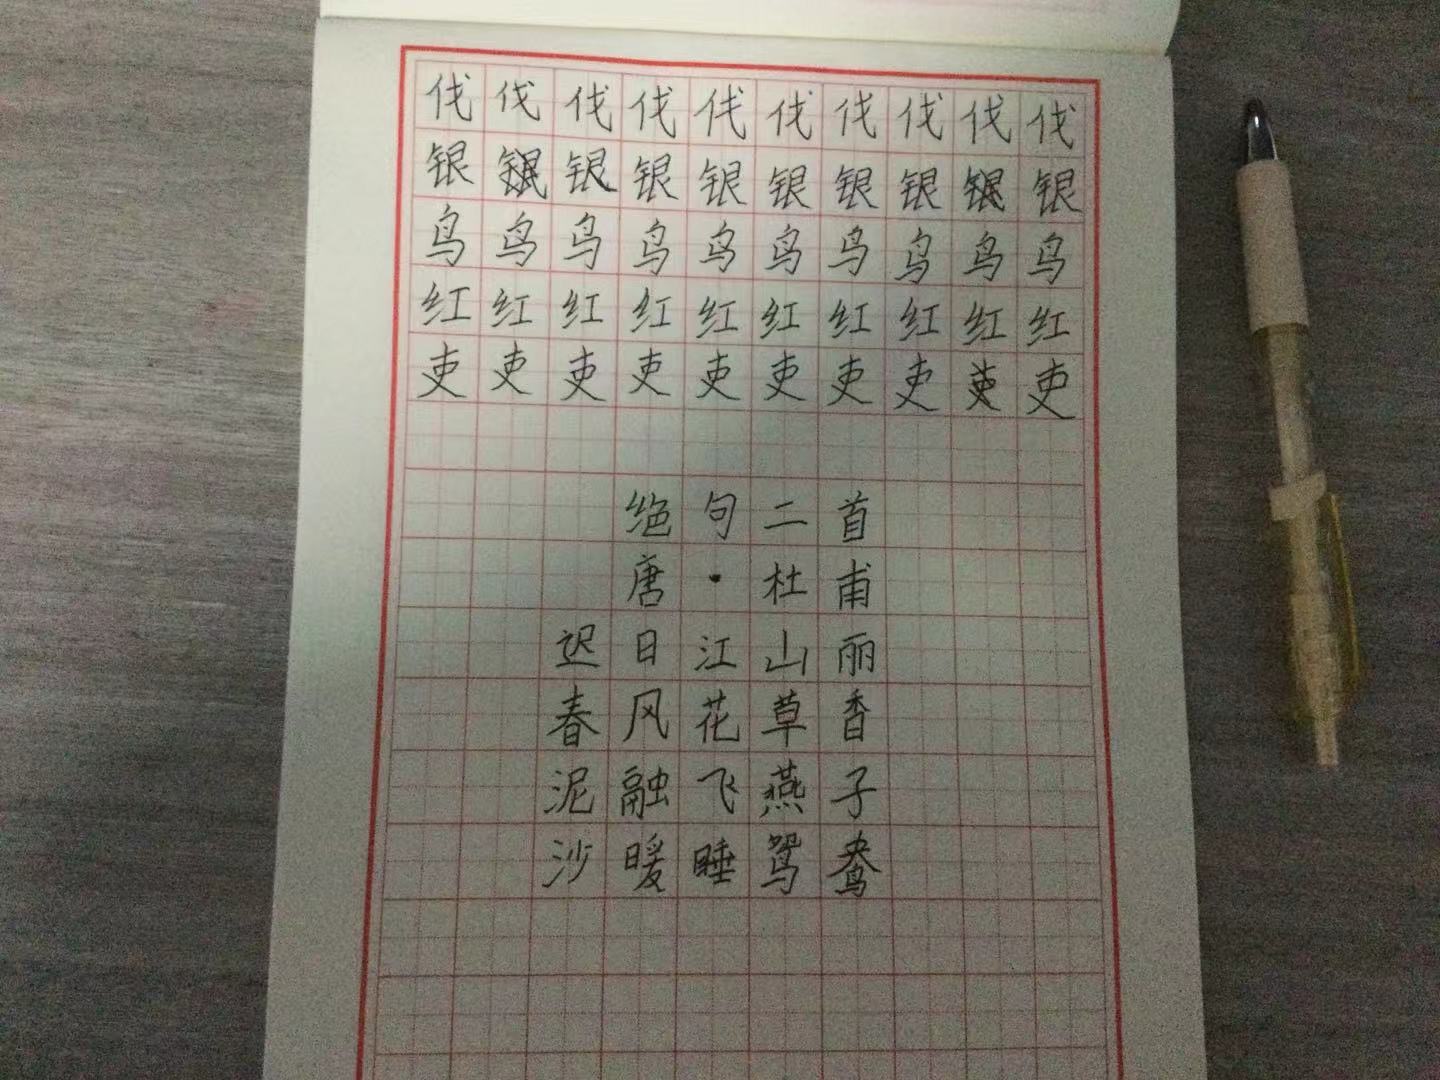 伐伐伐伐伐伐伐伐伐伐
银银银银银银银银银银
鸟鸟鸟鸟鸟鸟鸟鸟鸟鸟
红红红红红红红红红红
吏吏吏吏吏吏吏吏吏吏
绝句二首
唐·杜甫
迟日江山丽
春风花草香
泥融飞燕子
沙暖睡鸳鸯